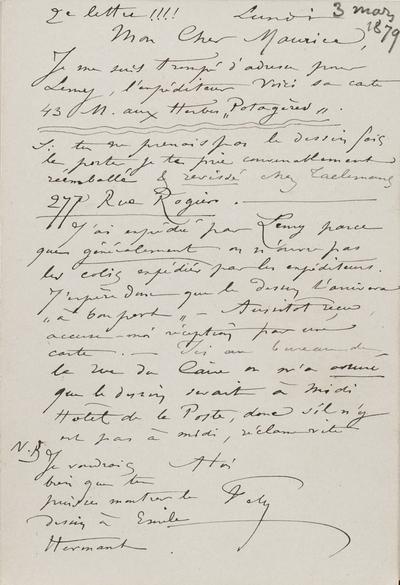 2e lettre!!! Lundi 3 mars 1879
Mon Cher Maurice,
Je me suis trompé d'adresse pour
Lemy, l'expéditeur Voici sa carte
43 M. aux Herbes "Potagères".
Si tu ne prenais pas le dessin fais
le porter je te prie convenablement
réemballé & revissé chez Taelemans
277 Rue Rogier.
J'ai expédié par Lemy parce
que généralement on n'ouvre pas
les colis expédiés par les expéditeurs.
J'espère donc que le dessin t'arrivera
"à bon port" – Aussitôt reçu,
accuse-moi réception par une
carte. – Ici au bureau de
la rue du Caire on m'a assuré
que le dessin serait à midi
Hotel de la Poste, donc s'il n'y
est pas à midi, réclame vite
N.B Je voudrais A toi
bien que tu
puisses montrer le Fély
dessin à Emile
Hermant